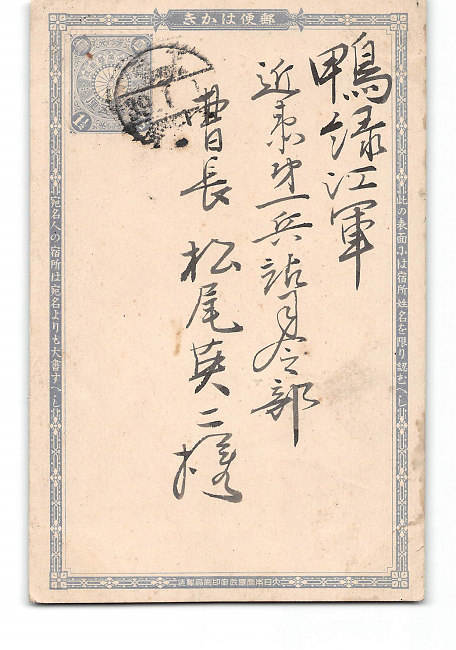 郵便はかき
此の表面には宿所姓名を限り認むへし
鴨緑江軍
近衛第一兵站司令部
曹長 松尾英二様
1½
宛名人の宿所は宛名よりも大書すへし
大日本帝國政府印刷局製造